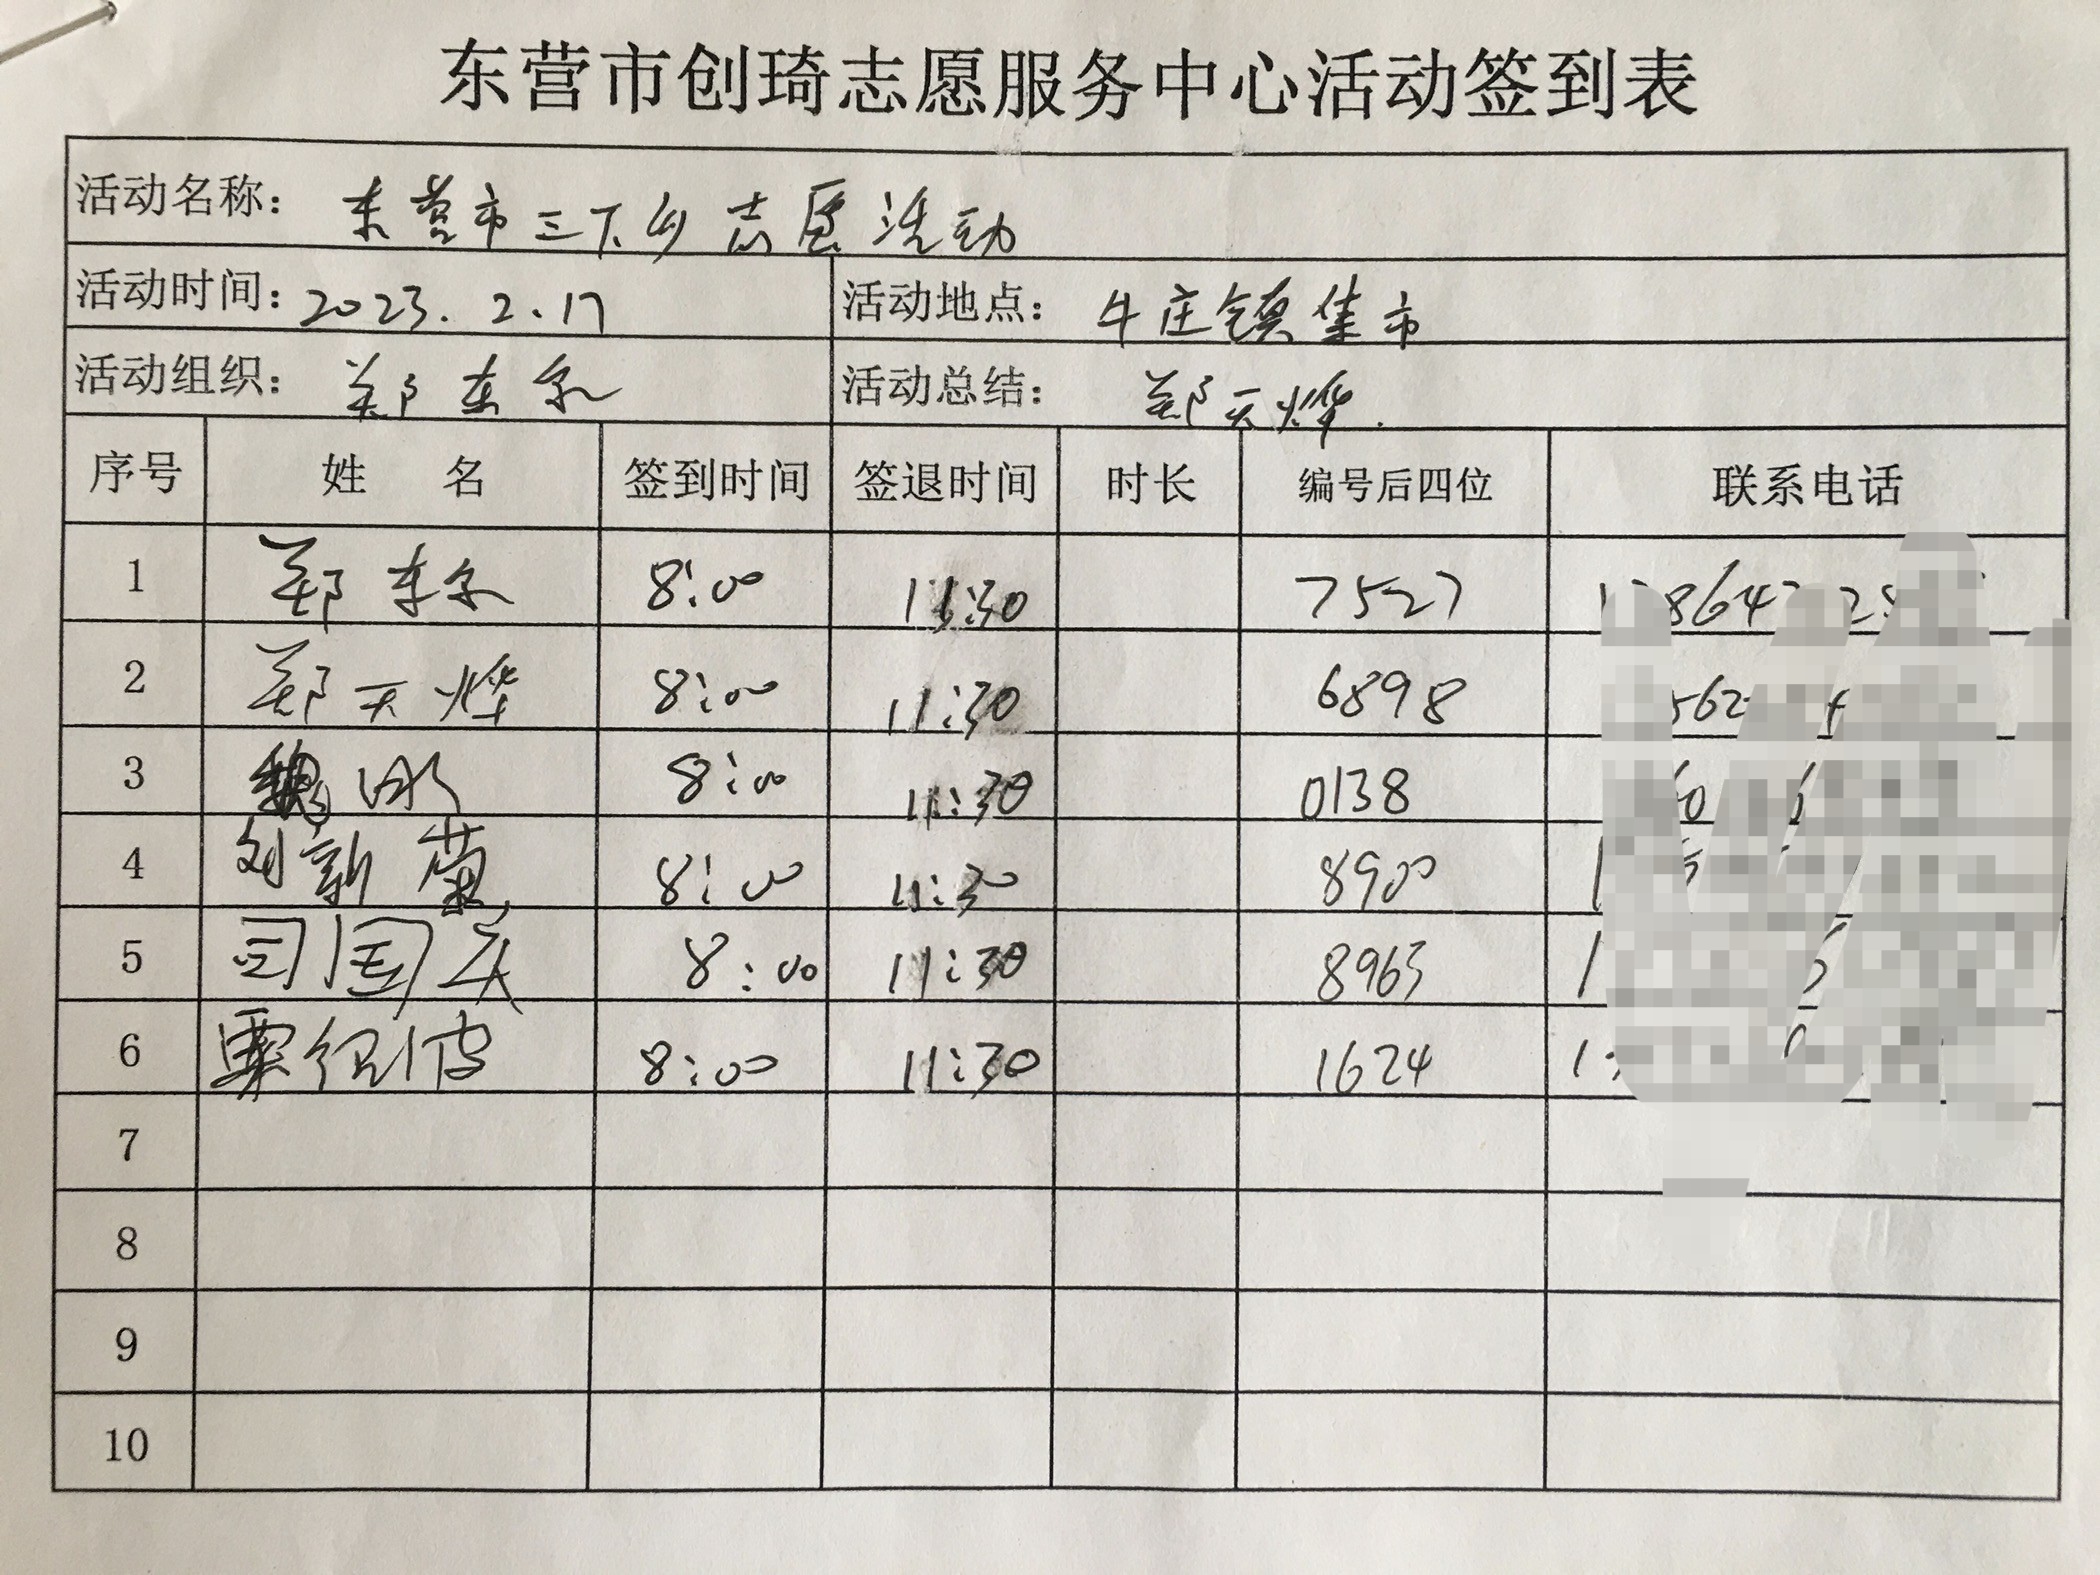 东营市创琦志愿服务中心活动签到表
活动名称： 东营市三下乡志愿活动
活动时间：2023.2.17 活动地点： 牛庄镇集市
活动组织： 郑东尔 活动总结： 郑天烨.
序号 姓 名 签到时间 签退时间 时长 编号后四位 联系电话
1 郑东尔 8:00 11:30 7527
2 郑天烨 8:00 11:30 6898
3 魏 8:00 11:30 0138
4 刘新兰 8:00 11:30 8900
5 司国庆 8:00 11:30 8963
6 8:00 11:30 1624
7
8
9
10